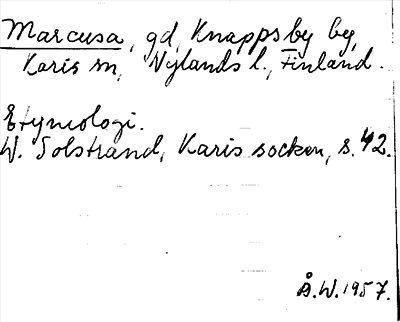 Marcusa, gd, Knappsby by,
Karis sn, Nylands l., Finland.
Etymologi.
W. Solstrand, Karis socken, s. 42.
Å.W. 1957.